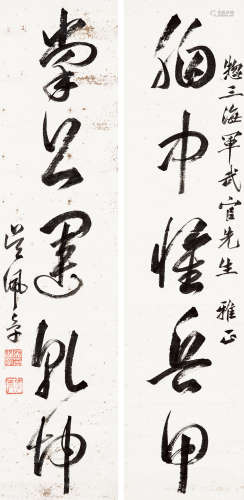 惣三海軍武官先生 雅正
胸中懷兵甲
掌上運乾坤
吳佩孚